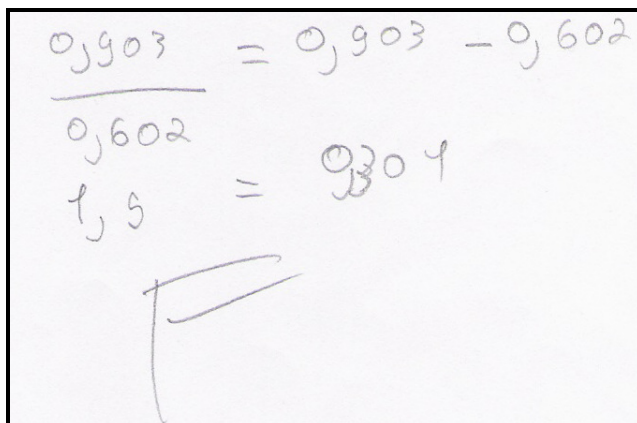 0,903 = 0,903 - 0,602
0,602
1,5 = 0,301
F